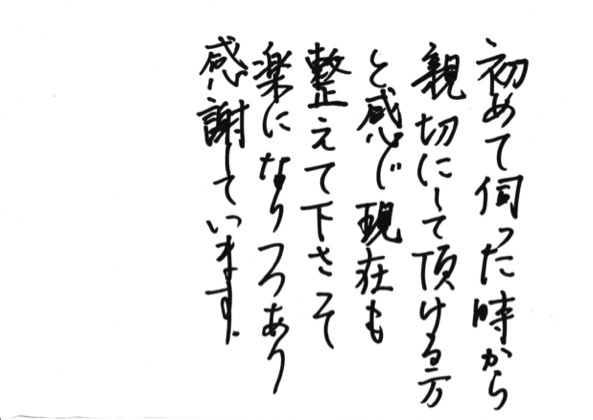 初めて伺った時から
親切にして頂ける方
と感じ現在も
整えて下さって
楽になりつつあり
感謝しています.